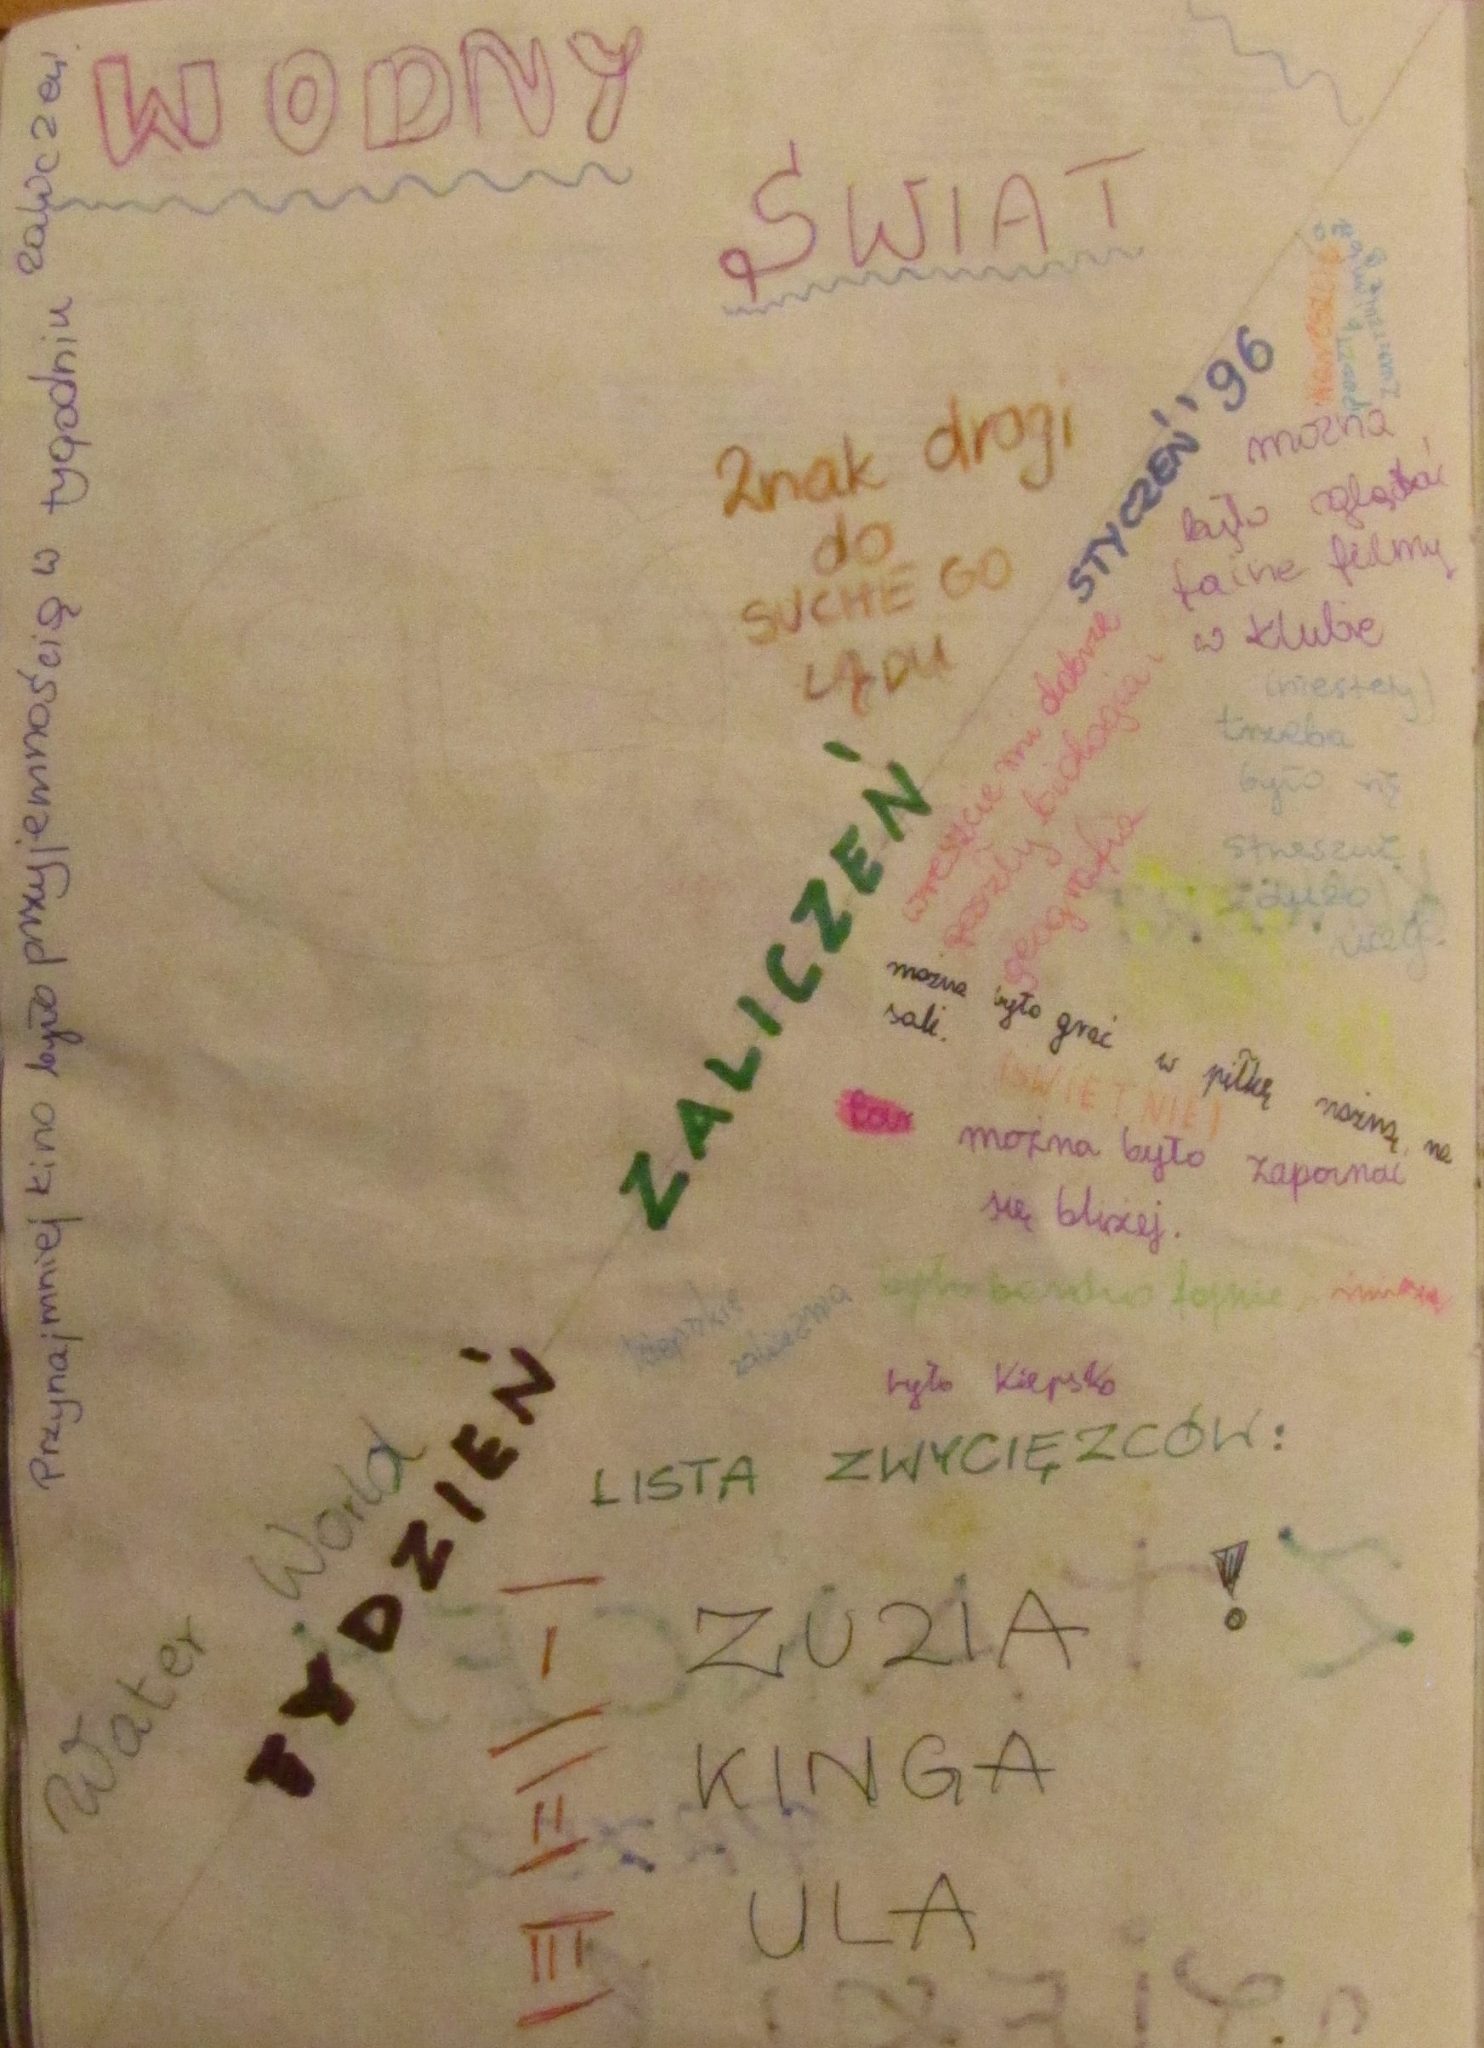 WODNY
ŚWIAT
Przynajmniej kino było przyjemnością w tygodniu zaliczeń.
Znak drogi
do
SUCHEGO
LĄDU
STYCZEŃ '96
ZALICZEŃ
TYDZIEŃ
Water World
można
było oglądać
fajne filmy
w klubie
(niestety)
trzeba
było się
wreszcie mi dobrze
poszły biologia i
geografia
można było grać w piłkę nożną na
sali.
ŚWIETNIE!
można było zapoznać
się bliżej.
było bardzo fajnie,
było kiepsko
LISTA ZWYCIĘZCÓW:
I ZUZIA!
II KINGA
III ULA